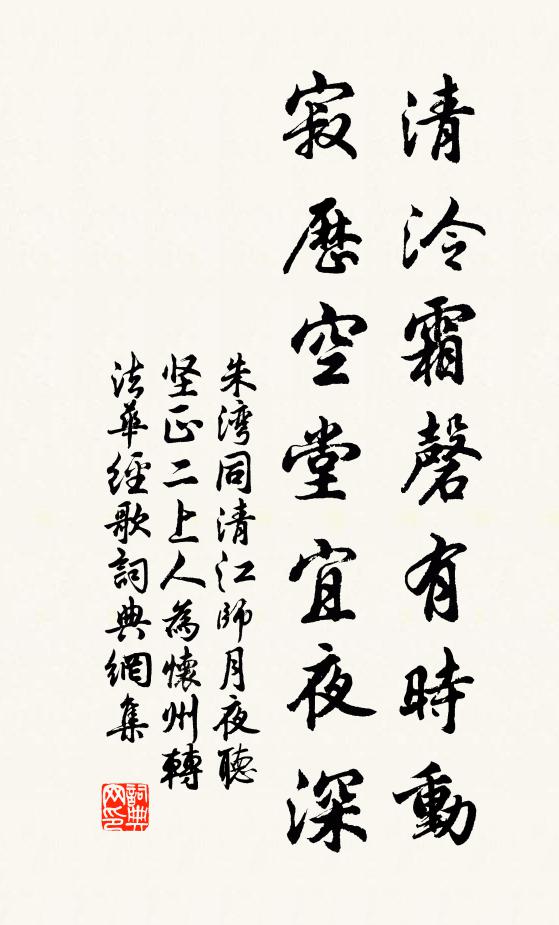 清泠霜磬有時動
寂歷空堂宜夜深
朱湾同清江師月夜聽
坚正二上人為懷州轉
法華經歌詞典網集
詞典网印